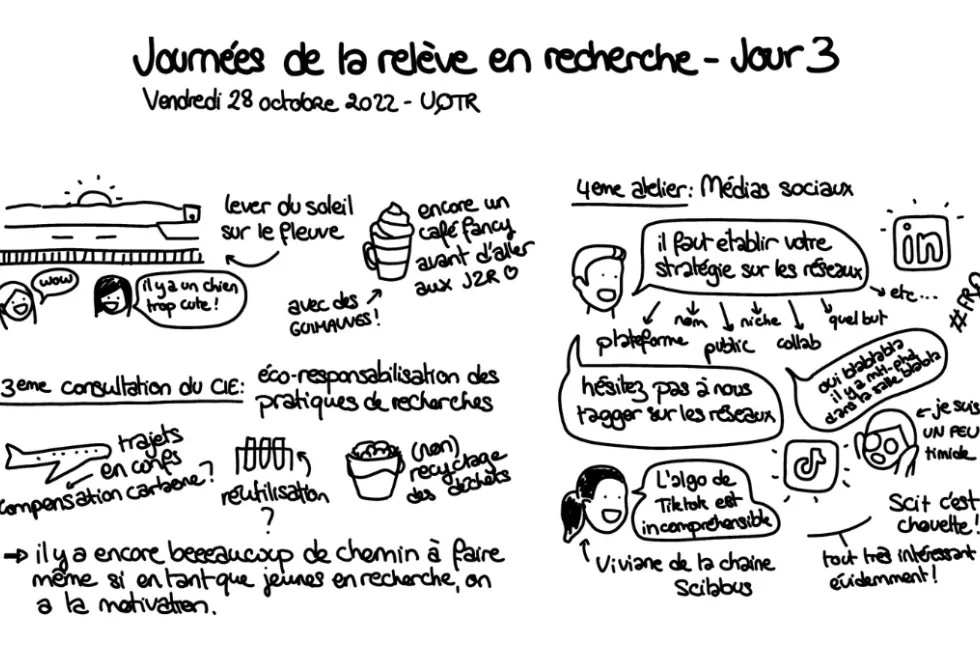 Journées de la relève en recherche - Jour 3
Vendredi 28 octobre 2022 - UQTR
lever du soleil
sur le fleuve
encore un
café fancy
avant d'aller
aux J2R
avec des
GUIMAUVES!
wow
il y a un chien
trop cute!
3eme consultation du CIE:
éco-responsabilisation des
pratiques de recherches
trajets
en confs
compensation carbone?
réutilisation
?
(non)
recyclage
des déchets
→ il y a encore beeeaucoup de chemin à faire
même si en tant que jeunes en recherche, on
a la motivation.
4eme atelier: Médias sociaux
il faut etablir votre
stratégie sur les réseaux
in
plateforme
nom
public
niche
collab
quel but
etc...
hésitez pas à nous
tagger sur les réseaux
oui blablabla
dans la salle blabla
je suis
UN PEU
timide
L'algo de
Tiktok est
incompréhensible
Viviane de la chaîne
Scilabus
Scit c'est
chouette!
tout très intéressant
évidemment!